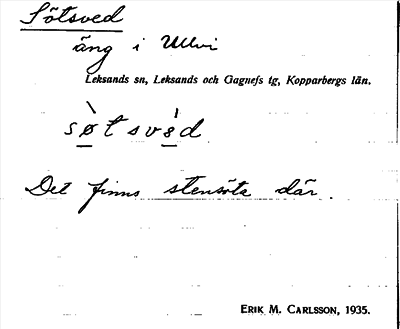 Sötsved
äng i Ullvi
Leksands sn, Leksands och Gagnefs tg, Kopparbergs län.
sø̱̀tsvǝ̱́d
Det finns stensöta där.
ERIK M. CARLSSON, 1935.